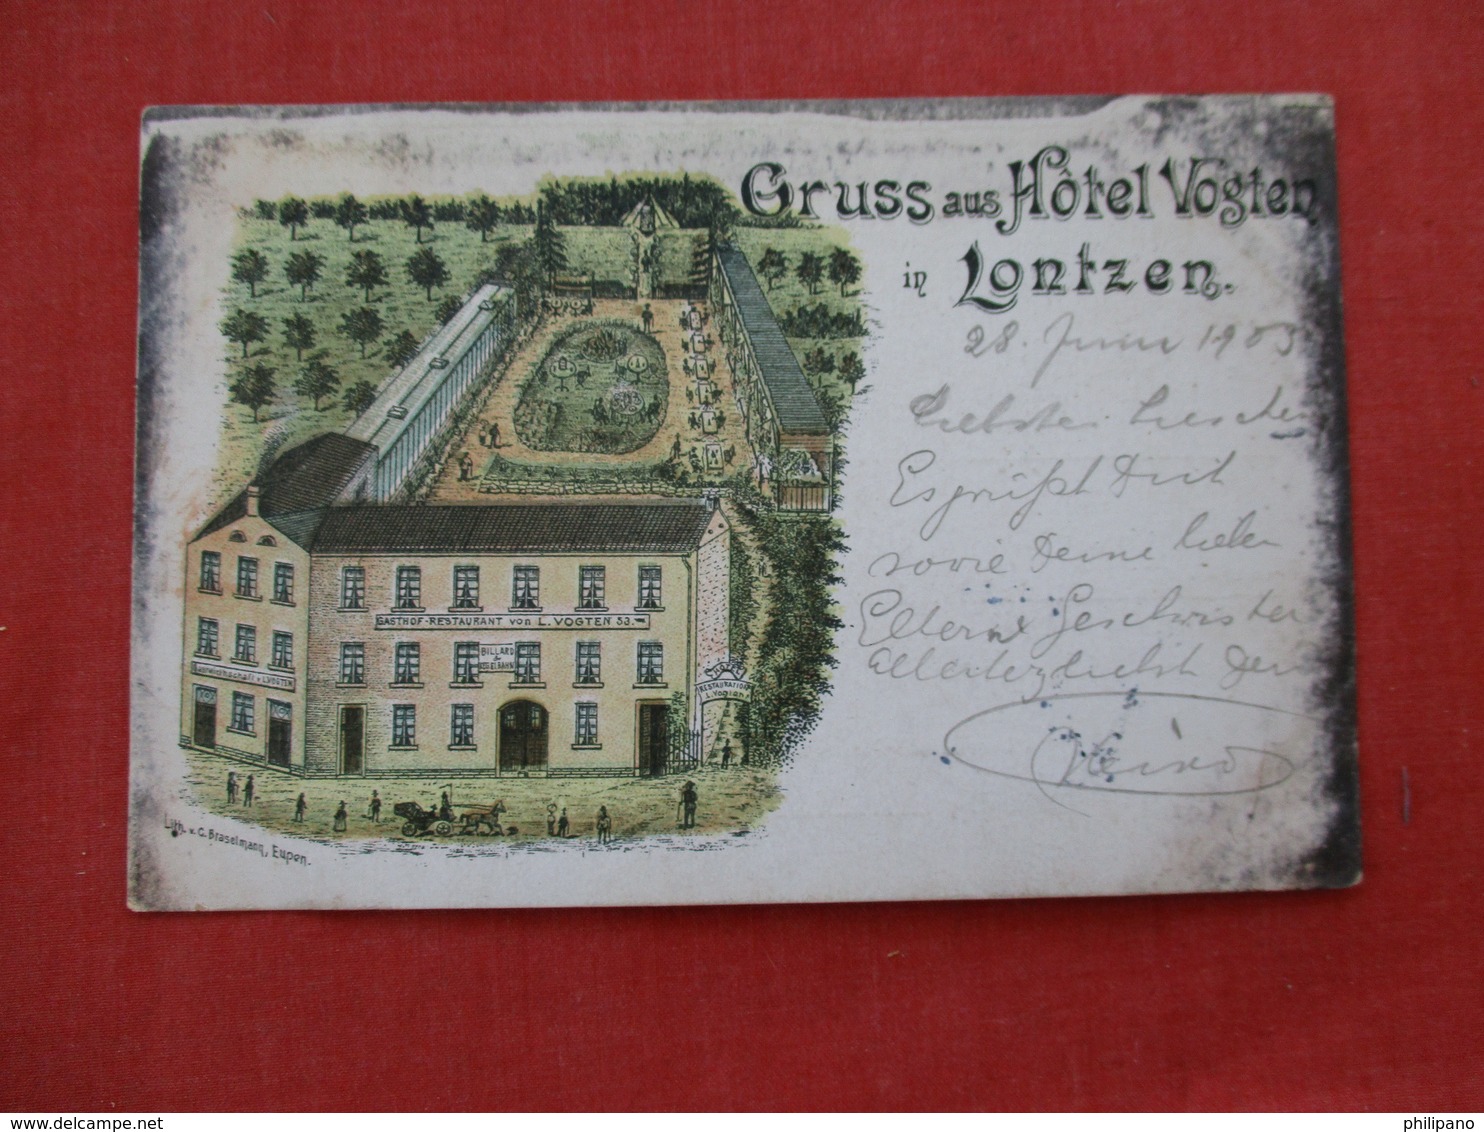 Gruss aus Hôtel Vogten
in Lontzen.
28. Juni 1903
Liebstes Lieschen
Es grüßt Dich
sowie Deine lieben
Eltern Geschwister
Allerherzlichst Dein
GASTHOF-RESTAURANT von L. VOGTEN 53.
BILLARD
&
KEGELBAHN
HOTEL
RESTAURATION
L. Vogten
Lith. v. C. Braselmann, Eupen.
philipano